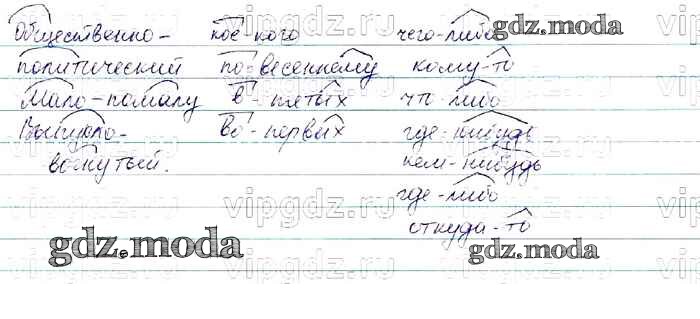 Общественно- кое кого чего-либо
политический по-весеннему кому-то
Мало-помалу в-пятых чт-либо
Выпукло- Во-первых где-нибудь
вогнутый. кем-нибудь
где-либо
откуда-то
gdz.moda
gdz.moda
gdz.moda
vipgdz.ru